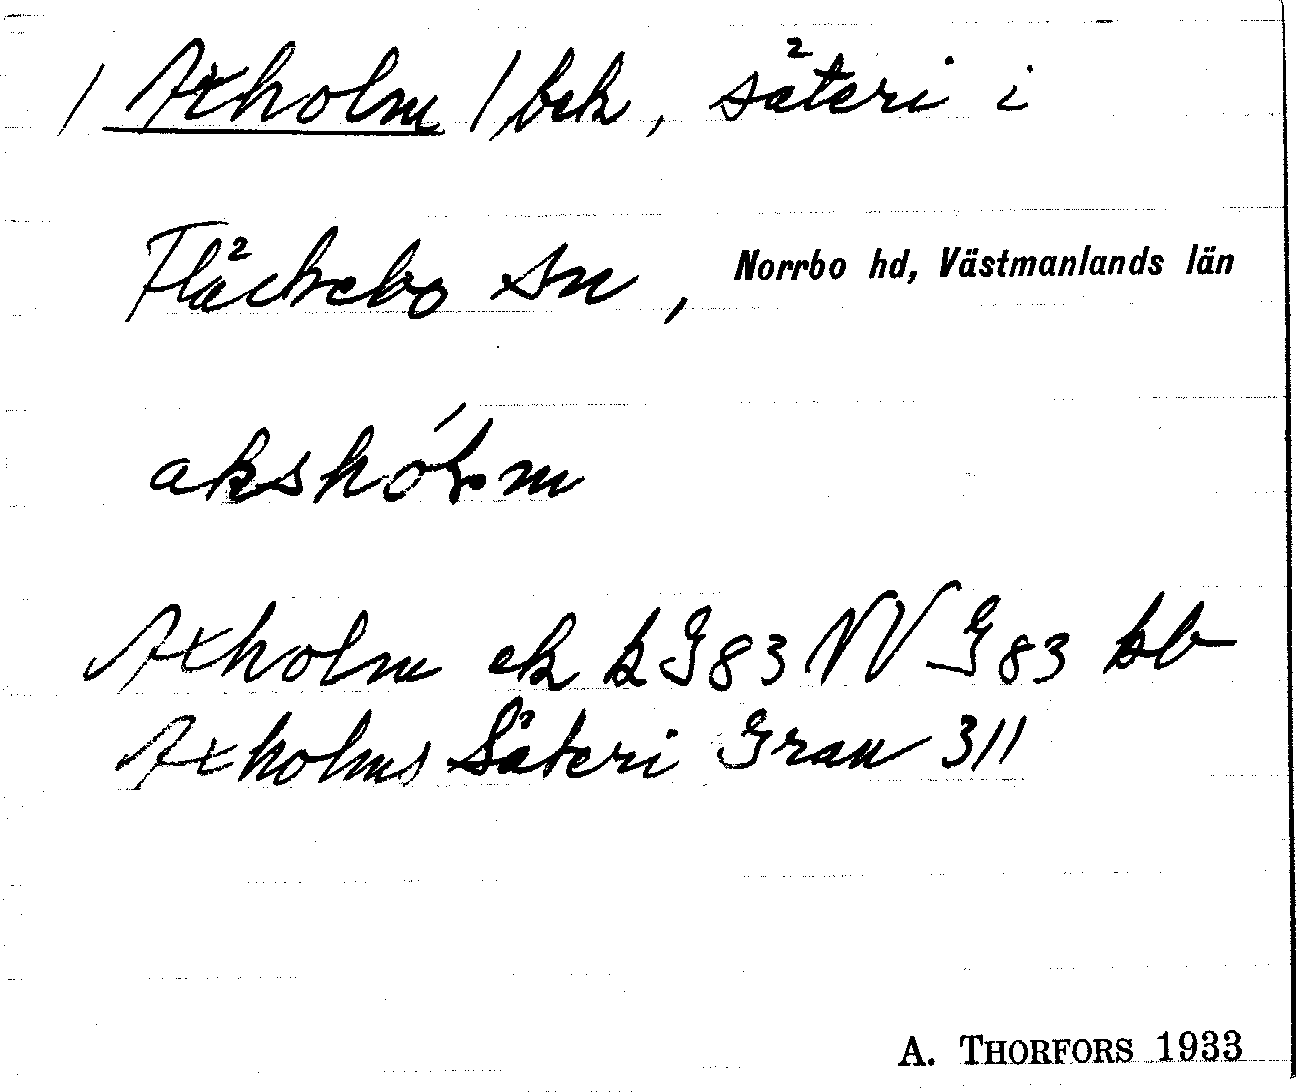 / Axholm / bek, säteri i
Fläckebo sn, Norrbo hd, Västmanlands län
akshól.m
Axholm ek k G83 NV G83 kb
Axholms Säteri Gran 311
A. THORFORS 1933